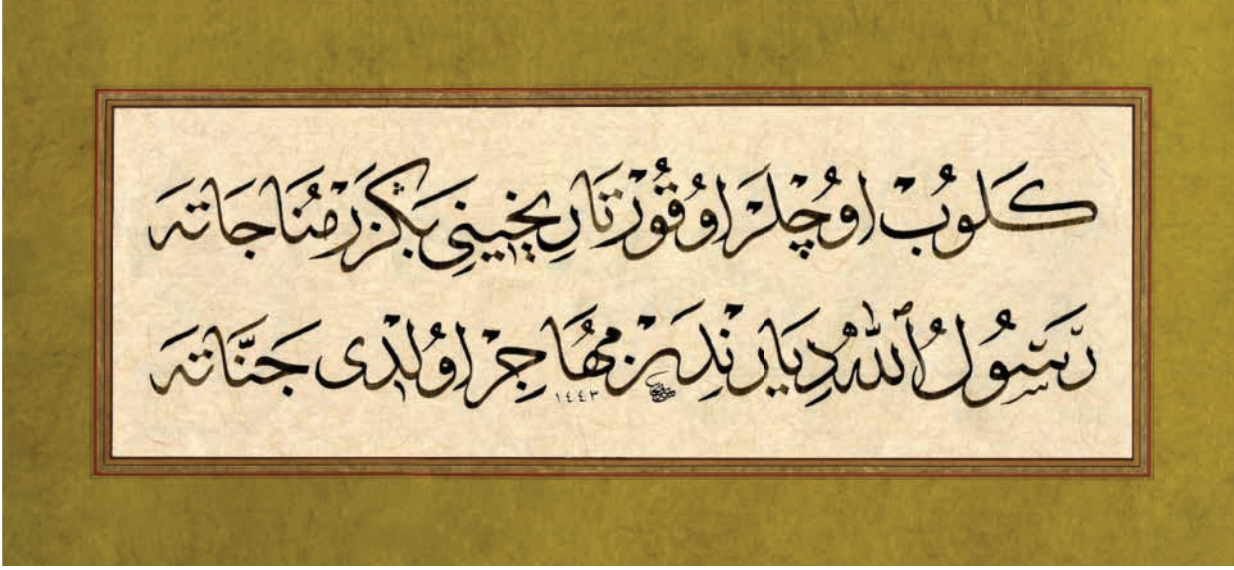 كَلوُبْ اوُچْلَرْ اوُقُورْ تَارِيخِينِى بَڭْزَرْ مُنَاجَاتَه
رَسُولُ ٱللّٰهْ دِيَارِنْدَنْ مُهَاجِرْ اوُلْدِى جَنَّاتَه
١٤٤٣